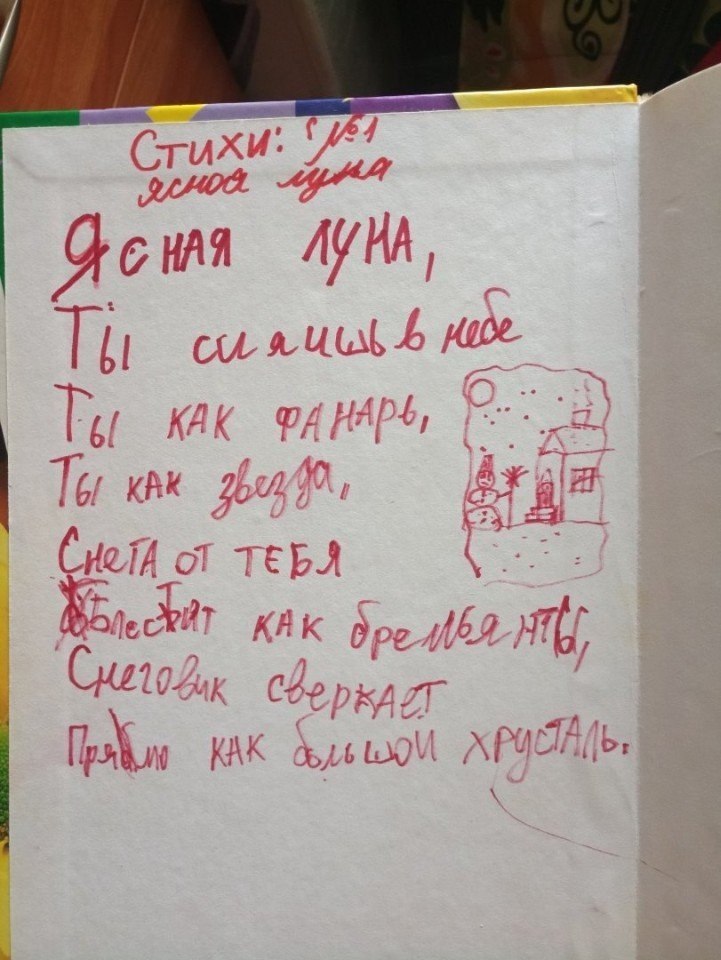 Стихи: №1
ясная луна
Ясная луна,
Ты сияишь в небе
Ты как фанарь,
Ты как звезда,
Снега от тебя
Блестит как бремьянты,
Снеговик сверкает
Прямо как большой хрусталь.